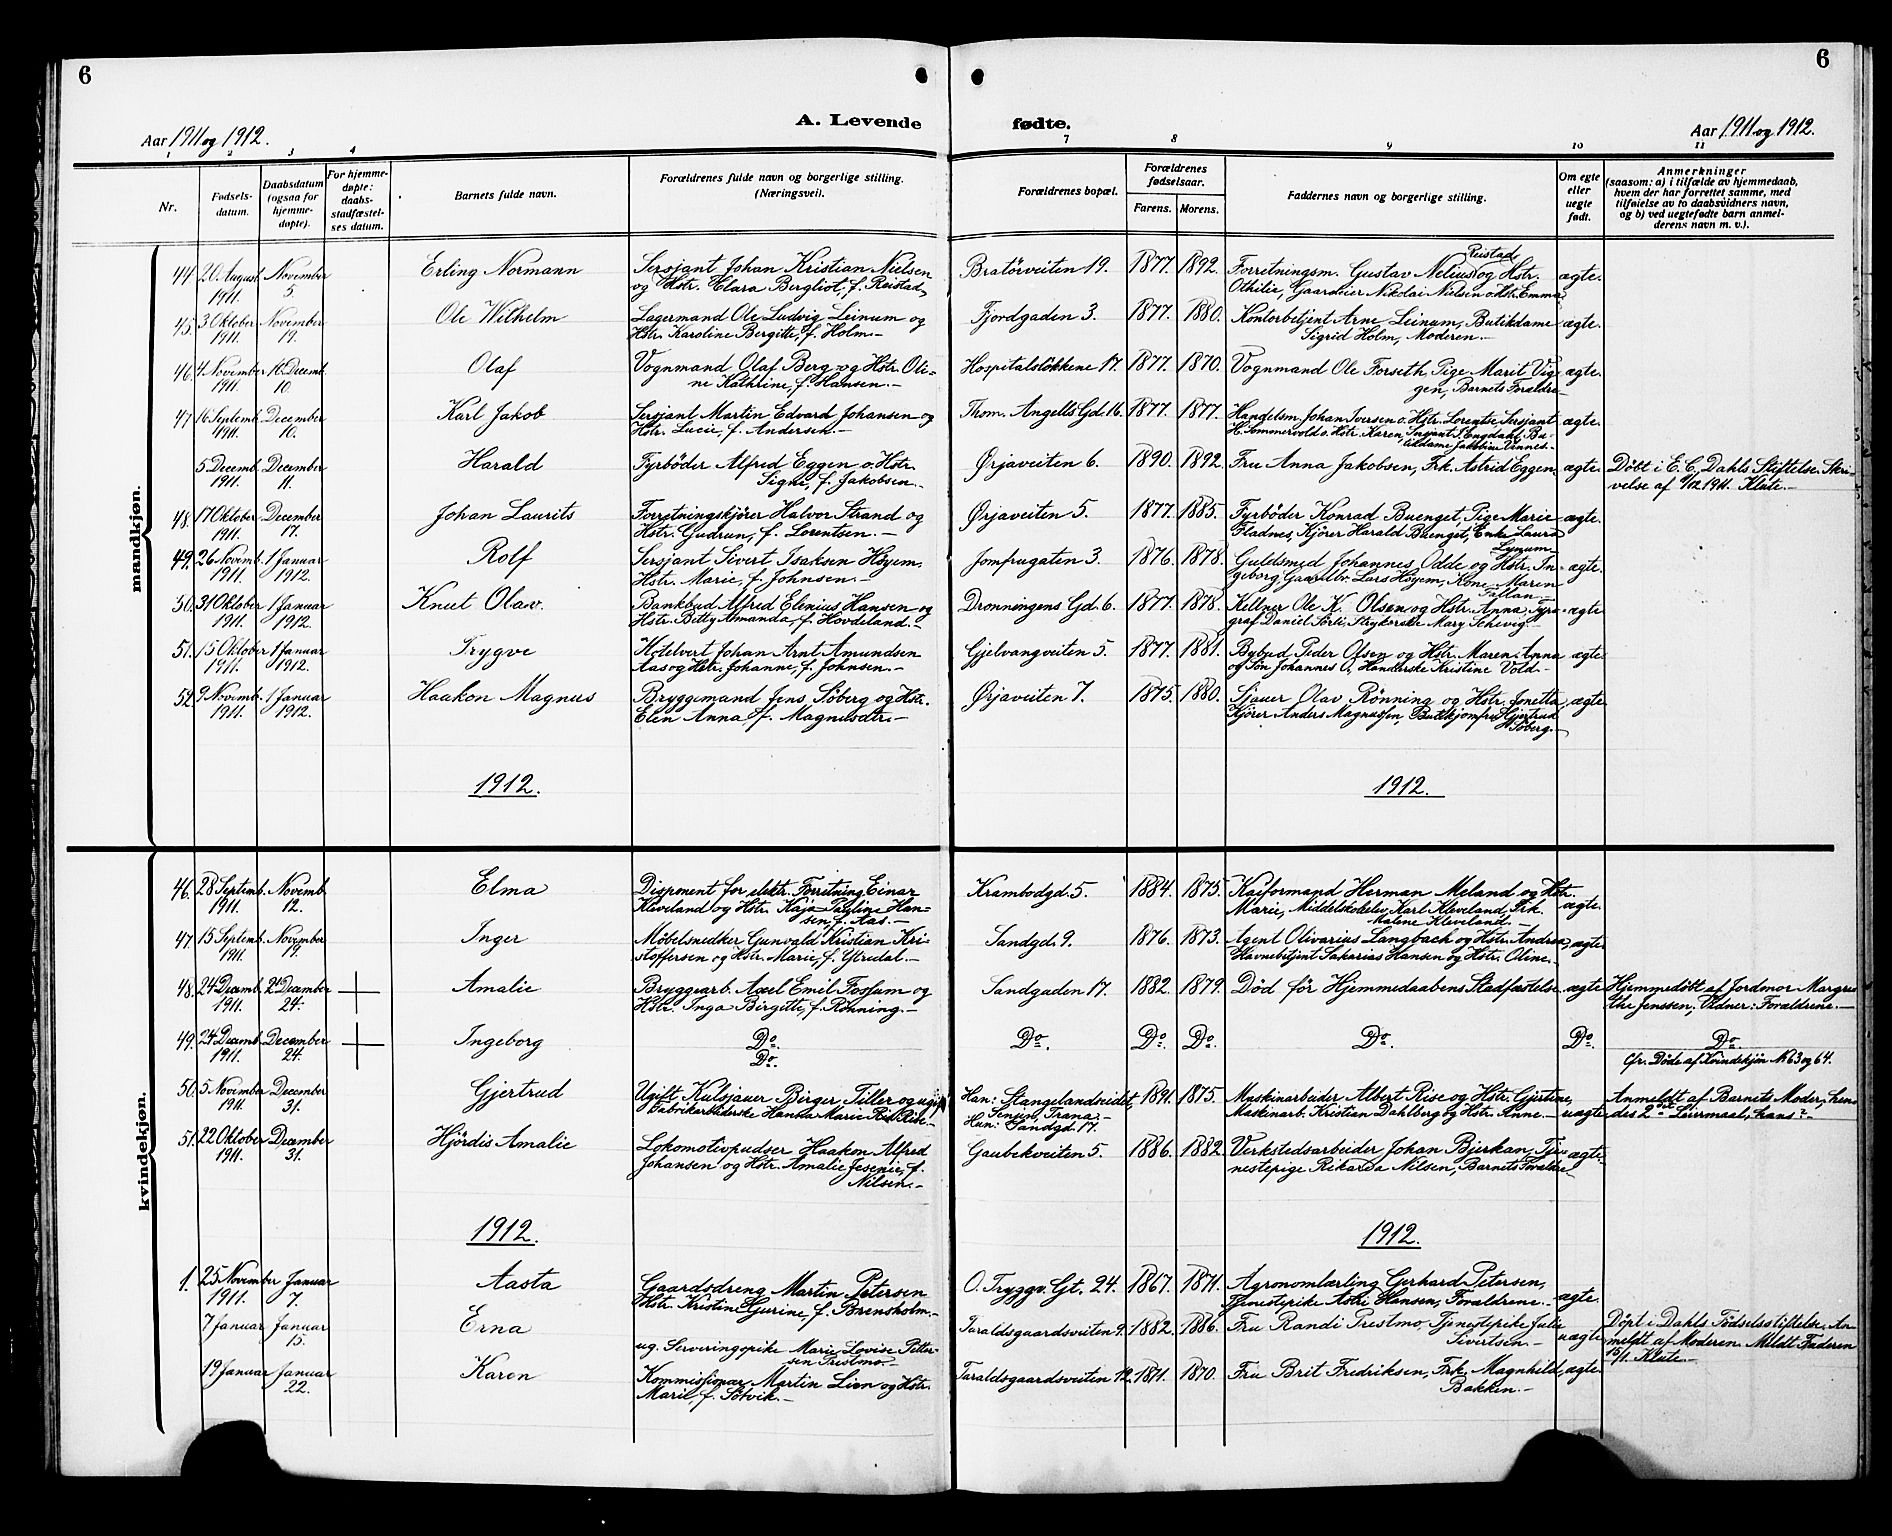 6
6
A. Levende
fødte.
Aar 1911 og 1912.
Aar 1911 og 1912.
1 2 3 4 7 8 9 10 11
Nr.
Fødsels-
datum.
Daabsdatum
(ogsaa for
hjemme-
døpte).
For hjemme-
døpte:
daabs-
stadfæstel-
ses datum.
Barnets fulde navn.
Forældrenes fulde navn og borgerlige stilling.
(Næringsvei).
Forældrenes bopæl.
Forældrenes
fødselsaar.
Farens. Morens.
Faddernes navn og borgerlige stilling.
Om egte
eller
uegte
født.
Anmerkninger
(saasom: a) i tilfælde av hjemmedaab,
hvem der har forrettet samme, med
tilføielse av to daabsvidners navn,
og b) ved uegtefødte barn anmel-
derens navn m. v.).
mandkjøn.
Reistad
44. 20. August November Erling Normann Sersjant Johan Kristian Nielsen Bratörveiten 19. 1877. 1892. Forretningsm. Gustav Nelius og Hstr. ægte.
1911. 5. og Hstr. Clara Bergliot, f. Reistad Othilie, Gaardeier Nikolai Nielsen o. Hstr. Emma
45. 3 Oktober November Ole Wilhelm Lagermand Ole Ludvig Leinum og Fjordgaden 3. 1877. 1880. Kontorbetjent Arne Leinum, Butikdame ægte.
1911. 19. Hstr. Karoline Bergitte, f. Holm.- Sigrid Holm, Moderen.-
46. 4 November 16 Decemb. Olaf Vognmand Olaf Berg og Hstr. Oli- Hospitalslökkene 17. 1877. 1870. Vognmand Ole Forseth, Pige Marit Vig- ægte.
1911. 10. ne Kathrine, f. Hansen.- gen, Barnets Forældre
47. 16 Septemb. December Karl Jakob Sersjant Martin Edvard Johansen og Thom. Angells Gd. 16. 1877. 1877. Handelsm. Johan Iversen o. Hstr. Lorentse, Sersjant ægte.
1911. 10. Hstr. Lucie, f. Andersen.- H. Sommervold o. Hstr. Karen, Engdahl, Bu-
tikdame Jakobine Vinnes.-
5 Decemb. December Harald Fyrböder Alfred Eggen o. Hstr. Ørjaveiten 6. 1890. 1892. Fru Anna Jakobsen, Frk. Astrid Eggen. ægte. Döbt i E. C. Dahls Stiftelse. Skri-
1911. 11. Signe, f. Jakobsen.- velse af 11/12 1911. Klute.-
48. 17 Oktober December Johan Laurits Forretningskjører Halvor Strand og Ørjaveiten 5. 1877. 1885. Fyrböder Konrad Buenget, Pige Marie ægte.
1911. 17. Hstr. Gudrun, f. Lorentsen.- Fladnes, Kjörer Harald Buenget, Enke Laura
Lynum
49. 26 Novemb. 1 Januar Rolf Sersjant Sivert Isaksen Höyem. Jomfrugaten 3. 1876. 1878. Guldsmed Johannes Odde og Hstr. In- ægte.
1911. 1912. Hstr. Marie, f. Johnsen.- geborg, Gaardbr. Lars Höyem, Kone Maren
Tallan
50. 31 Oktober 1 Januar Knut Olav. Bankbud Alfred Elenius Hansen og Dronningens Gd. 6. 1877. 1878. Kellner Ole K. Olsen og Hstr. Anna, Typo- ægte
1911. 1912. Hstr. Betty Amanda, f. Hovdeland.- graf Daniel Sörli, Strykerske Mary Schevig
51. 15 Oktober 1 Januar Trygve Hotelvert Johan Arnt Amundsen Gjelvangveiten 5. 1877. 1881. Bybud Peder Olsen og Hstr. Maren Anna ægte.
1911. 1912. Aas og Hstr. Johanne, f. Johnsen.- og Sön Johannes O., Handlerske Kristine Vold.-
52. 2 Novemb. 1 Januar Haakon Magnus Bryggemand Jens Söberg og Hstr. Ørjaveiten 7. 1875. 1880. Sjauer Olav Rönning og Hstr. Jonetta, ægte
1911. 1912. Elen Anna, f. Magnusdtr.- Kjörer Anders Magnussen, Butikjomfru Gjertrud
Söberg.-
1912. 1912.
kvindekjøn.
46. 28 Septemb. Novemb. Elma Disponent for elektr. Forretning Einar Krambodgd. 5. 1884. 1875. Kaiformand Herman Meland og Hstr. ægte.
1911. 12. Kleveland og Hstr. Kaja Pauline Han- Marie, Middelskolelev Karl Kleveland, Frk.
sen, f. Aas.- Malene Kleveland
47. 15 Septemb. November Inger Møbelsnedker Gunvald Kristian Kri- Sandgd. 9. 1876. 1873. Agent Olivarius Langbach og Hstr. Andrea, ægte
1911. 19. stoffersen og Hstr. Marie, f. Ytredal.- Havnebetjent Sakarias Hansen og Hstr. Oline.-
48. 24 Decemb. 24 December + Amalie Bryggearb. Axel Emil Fossum og Sandgaden 17. 1882. 1879. Död för Hjemmedaabens Stadfæstelse. ægte Hjemmedöbt af Jordmor Margre-
1911. 24. Hstr. Inga Birgitte, f. Rönning.- the Jenssen; Vidner: Forældrene.-
49. 24 Decemb. December + Ingeborg Do. Do. Do. Do. Do. Do. Do.
1911. 24. Do. Cfr. Döde af Kvindekjön № 63 og 64.
50. 5 November December Gjertrud Ugift Kulsjauer Birger Tiller og ugift Han: Stangelandsvidet, 1891. 1875. Maskinarbeider Albert Rise og Hstr. Gjertine, uægte Anmeldt af Barnets Moder, hen-
1911. 31. Fabrikarbeiderske Hanna Marie Rise.- Hun: Sandgd. 17. Maskinarb. Kristian Dahlberg og Hstr. Anne.- des 2det Leiermaal, hans?-
51. 22 Oktober December Hjördis Amalie Lokomotivpudser Haakon Alfred Gaubekveiten 5. 1886. 1882. Verkstedsarbeider Johan Bjerkan, Tje- ægte.
1911. 31. Johansen og Hstr. Amalie Jesenie, f. nestepige Rikarda Nilsen, Barnets Forældre
Nilsen.-
1912. 1912.
1. 25 November Januar Aasta Gaardsdreng Martin Petersen O. Tryggv. Gt. 24. 1867. 1871. Agronomlærling Gerhard Petersen, ægte.
1911. 7. Hstr. Kristine Gurine, f. Brensholm.- Tjenestepike Astri Hansen, Forældrene.-
7 Januar Januar Erna Taraldsgaardsveiten 9. 1882. 1886. Fru Randi Trestmo, Tjenestpike Julie uægte Döpt i Dahls Födselsstiftelse. An-
15. ug. Serveringspike Marie Lovise Petter- Sivertsen.- meldt af Moderen. Meldt Faderen
sen Trestmo.- 15/1. Klute.-
19 Januar Januar Karen Kommissionær Martin Lien og Hstr. Taraldsgaardsveiten 12. 1871. 1870. Fru Brit Fredriksen, Frk. Magnhild, ægte
22. Marie, f. Sötvik.- Bakken.-